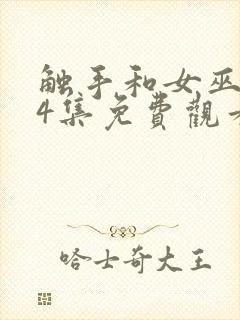 触手和女巫
4集免費觀
哈士奇大王